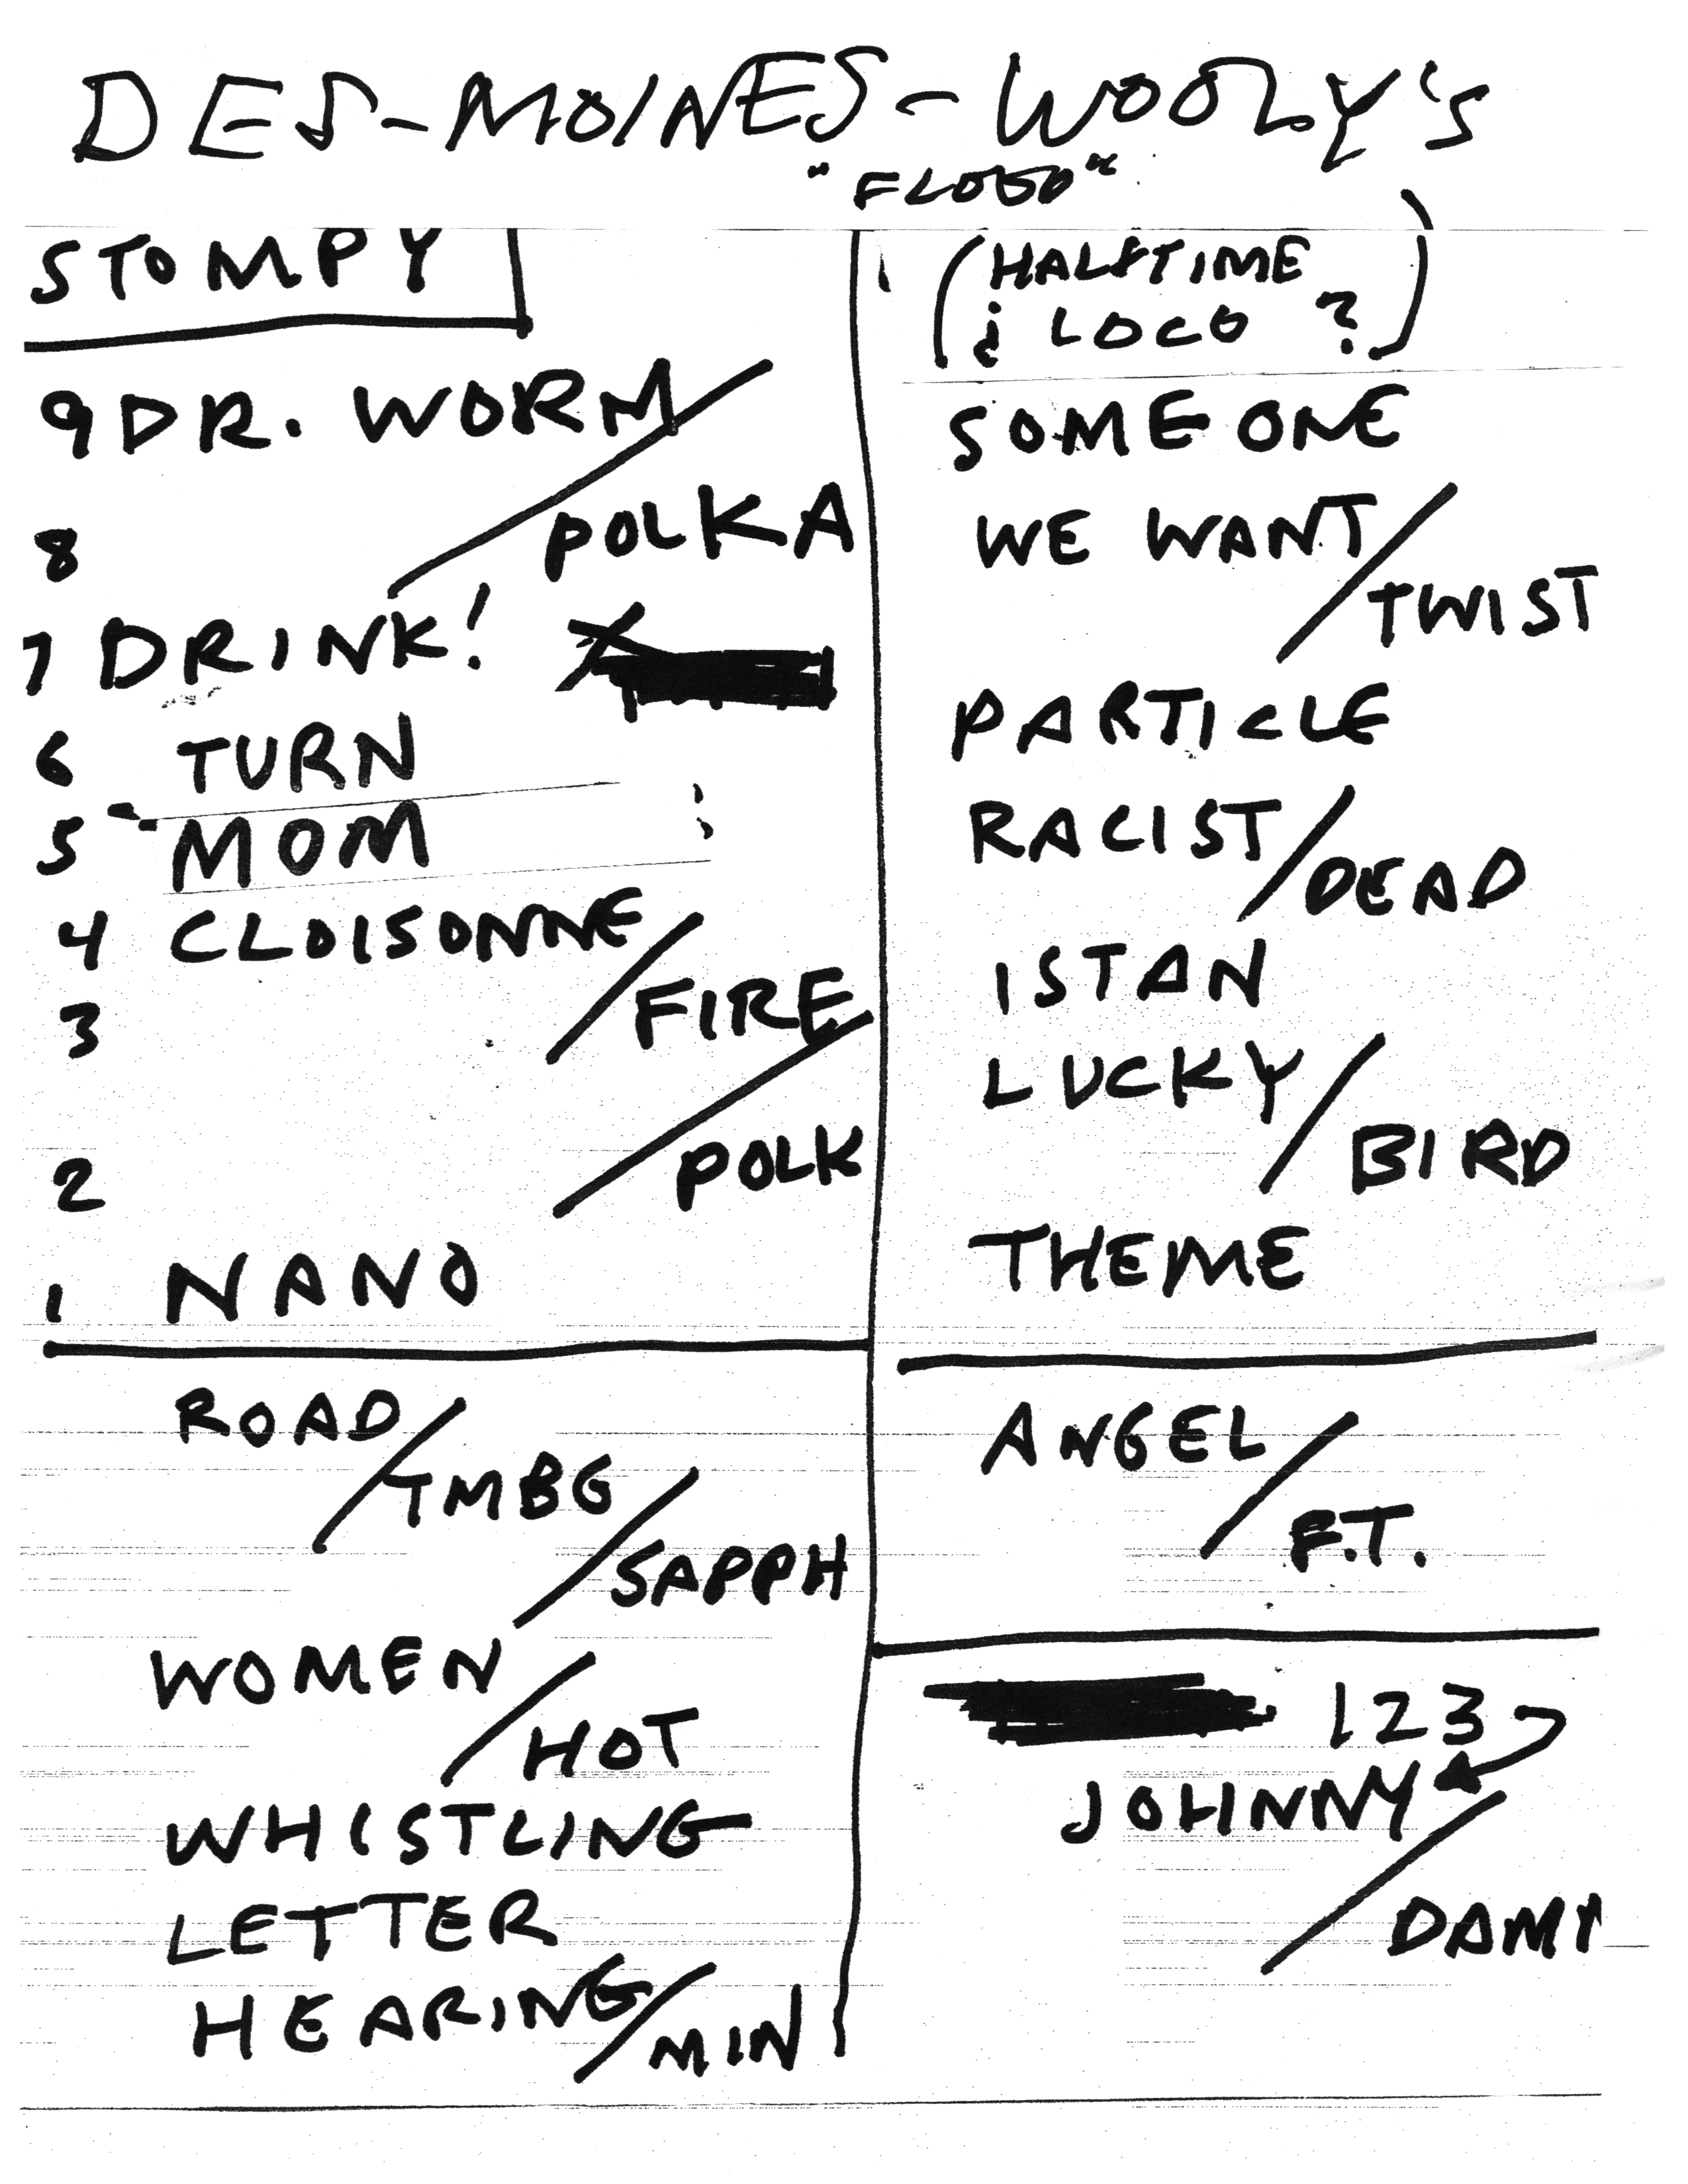 DES-MOINES-WOOLY'S
"FLOOD"
STOMPY
9 DR. WORM /
8 POLKA
7 DRINK!
6 TURN
5 MOM
4 CLOISONNE /
3 FIRE /
2 POLK
1 NANO
ROAD /
TMBG /
SAPPH
WOMEN /
HOT
WHISTLING
LETTER
HEARING / MIN
(HALFTIME
¿ LOCO ?)
SOMEONE
WE WANT /
TWIST
PARTICLE
RACIST /
DEAD
ISTAN
LUCKY /
BIRD
THEME
ANGEL /
F.T.
123
JOHNNY /